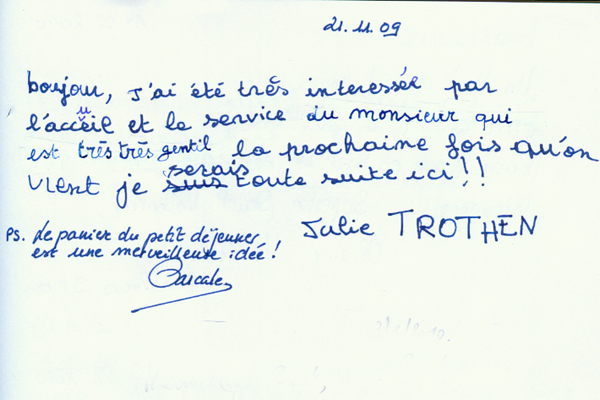 21.11.09
bonjour, j'ai été très interessée par
l'accueil et le service du monsieur qui
est très très gentil la prochaine fois qu'on
vient je serais toute suite ici!!
Julie TROTHEN
PS. Le panier du petit déjeuner
est une merveilleuse idée!
Pascale